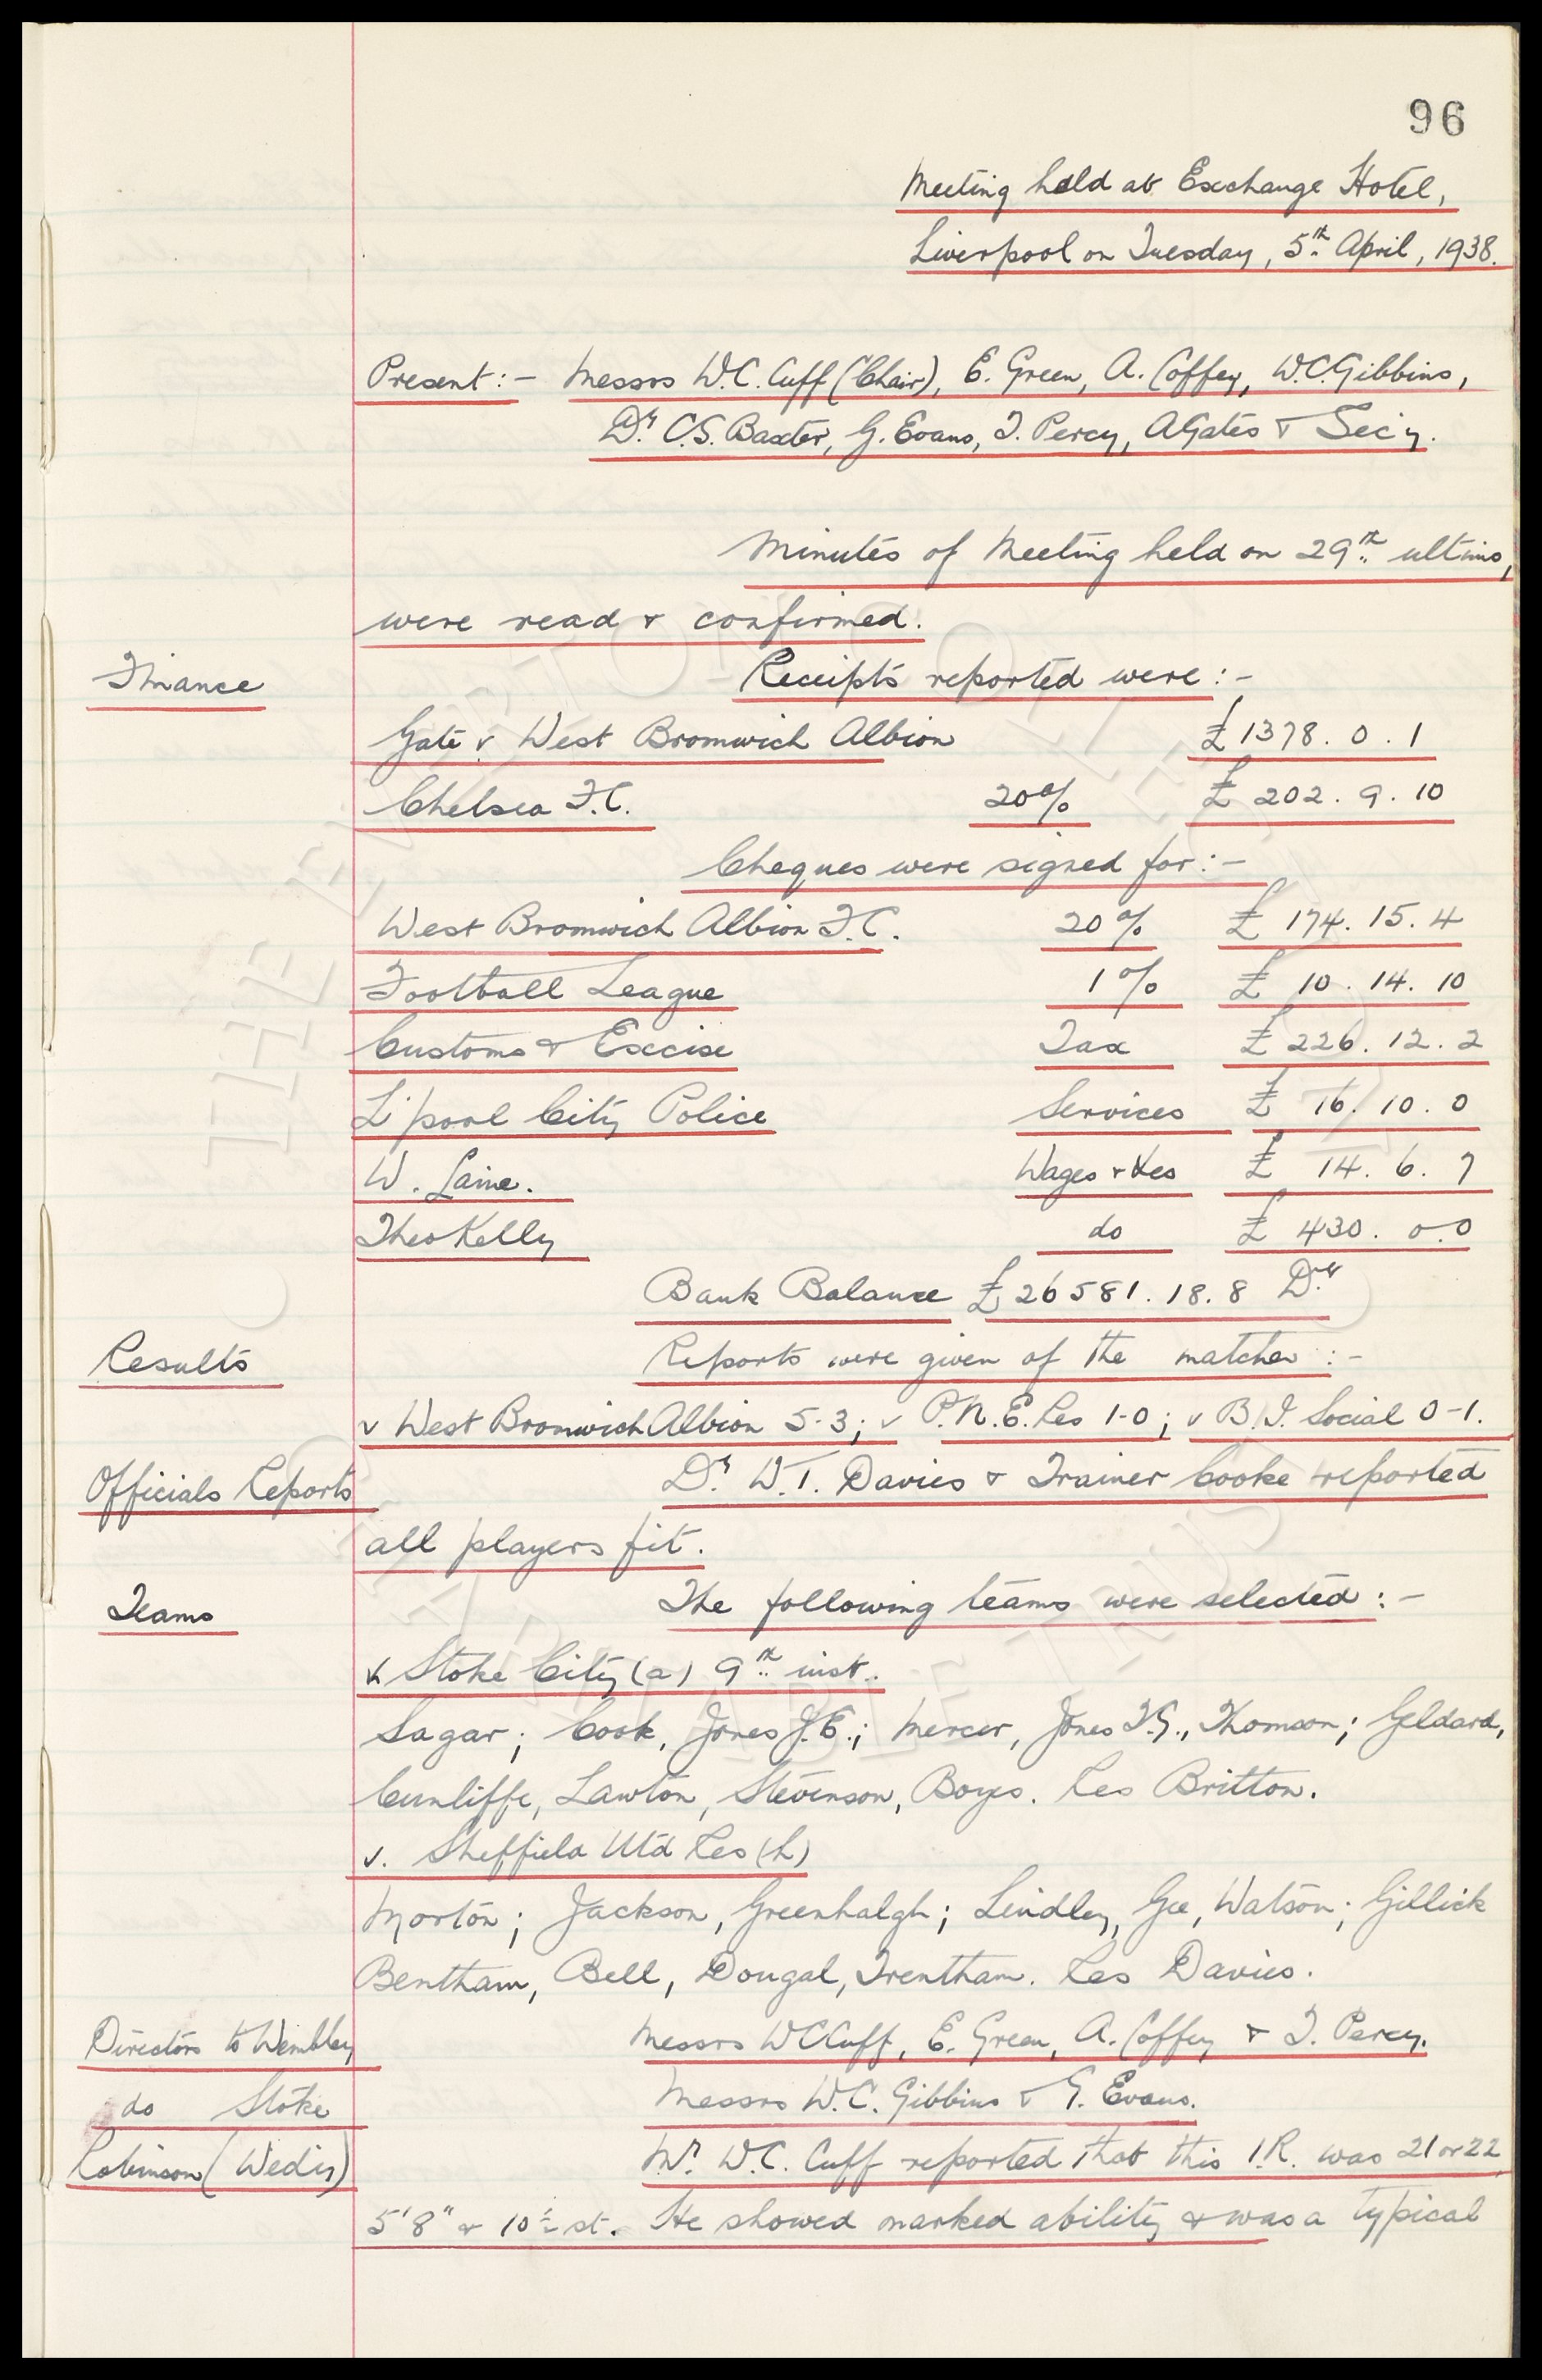 96
Meeting held at Exchange Hotel,
Liverpool on Tuesday, 5th April, 1938.
Present:- Messrs W.C. Cuff (Chair), E. Green, A. Coffey, W.C. Gibbins,
Dr. C.S. Baxter, G. Evans, T. Percy, A Gates & Sec'y.
Minutes of Meeting held on 29th ultimo,
were read & confirmed.
Finance Receipts reported were:-
Gate v West Bromwich Albion £1378. 0. 1
Chelsea F.C. 20% £ 202. 9. 10
Cheques were signed for:-
West Bromwich Albion F.C. 20% £ 174. 15. 4
Football League 1% £ 10. 14. 10
Customs & Excise Tax £ 226. 12. 2
L'pool City Police Services £ 16. 10. 0
W. Laine. Wages & £ 14. 6. 7
Theo Kelly do £ 430. 0. 0
Bank Balance £26581. 18. 8 Dr
Results Reports were given of the matches:-
v West Bromwich Albion 5-3; v P.N.E. Res 1-0; v B.I. Social 0-1.
Officials Reports Dr. W.T. Davies & Trainer Cooke reported
all players fit.
Teams The following teams were selected:-
v Stoke City (a) 9th inst.
Sagar; Cook, Jones J.E.; Mercer, Jones T.G., Thomson; Geldard,
Cunliffe, Lawton, Stevenson, Boyes. Res Britton.
v. Sheffield Utd Res (h)
Morton; Jackson, Greenhalgh; Lindley, Gee, Watson; Gillick
Bentham, Bell, Dougal, Trentham. Res Davies.
Directors to Wembley Messrs W C Cuff, E. Green, A. Coffey & T. Percy.
do Stoke Messrs W.C. Gibbins & G. Evans.
Robinson (Wed'y) Mr. W.C. Cuff reported that this I.R. was 21 or 22,
5'8" & 10½ st. He showed marked ability & was a typical
THE EVERTON COLLECTION
CHARITABLE TRUST